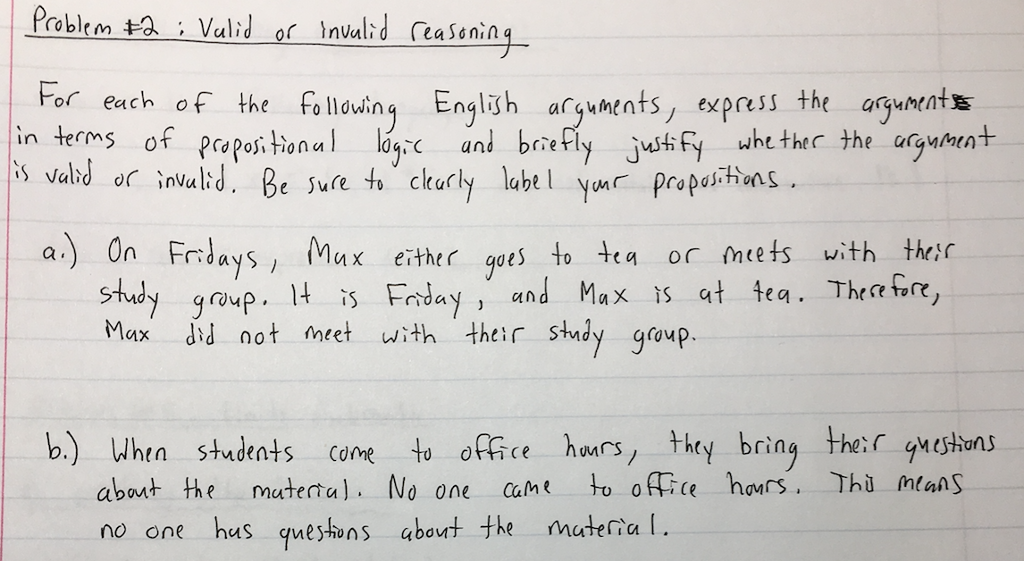 Problem #2 : Valid or invalid reasoning
For each of the following English arguments, express the argument
in terms of propositional logic and briefly justify whether the argument
is valid or invalid. Be sure to clearly label your propositions.
a.) On Fridays, Max either goes to tea or meets with their
study group. It is Friday, and Max is at tea. Therefore,
Max did not meet with their study group.
b.) When students come to office hours, they bring their questions
about the material. No one came to office hours. This means
no one has questions about the material.